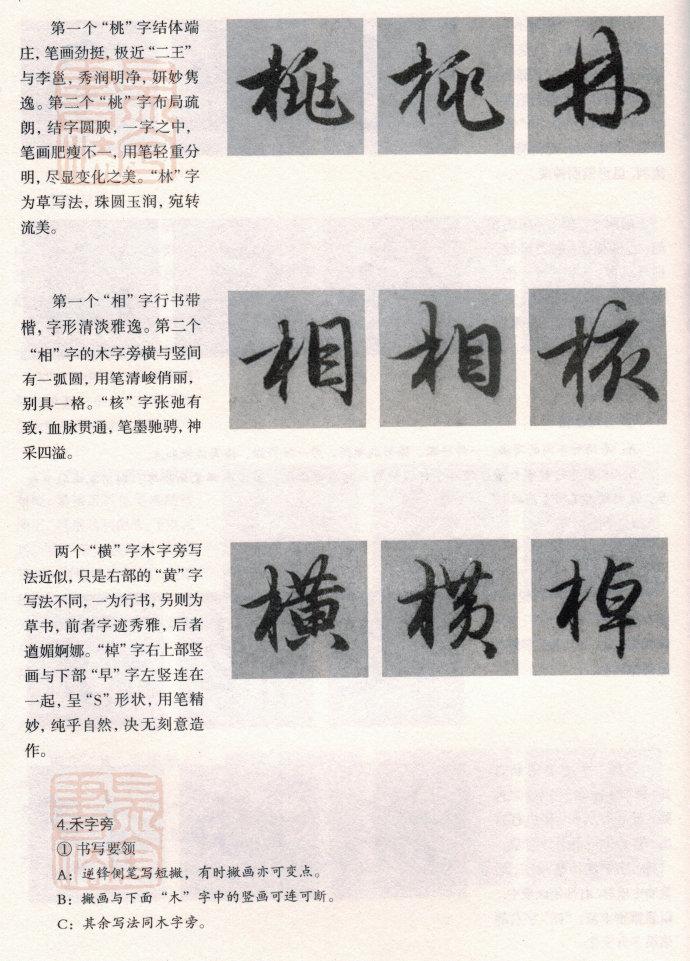 第一个“桃”字结体端
庄，笔画劲挺，极近“二王”
与李邕，秀润明净，妍妙隽
逸。第二个“桃”字布局疏
朗，结字圆腴，一字之中，
笔画肥瘦不一，用笔轻重分
明，尽显变化之美。“林”字
为草写法，珠圆玉润，宛转
流美。
桃 桃 林
第一个“相”字行书带
楷，字形清淡雅逸。第二个
“相”字的木字旁横与竖间
有一弧圆，用笔清峻俏丽，
别具一格。“核”字张弛有
致，血脉贯通，笔墨驰骋，神
采四溢。
相 相 核
两个“横”字木字旁写
法近似，只是右部的“黄”字
写法不同，一为行书，另则为
草书，前者字迹秀雅，后者
遒媚婀娜。“棹”字右上部竖
画与下部“早”字左竖连在
一起，呈“S”形状，用笔精
妙，纯乎自然，决无刻意造
作。
横 横 棹
4.禾字旁
① 书写要领
A：逆锋侧笔写短撇，有时撇画亦可变点。
B：撇画与下面“木”字中的竖画可连可断。
C：其余写法同木字旁。